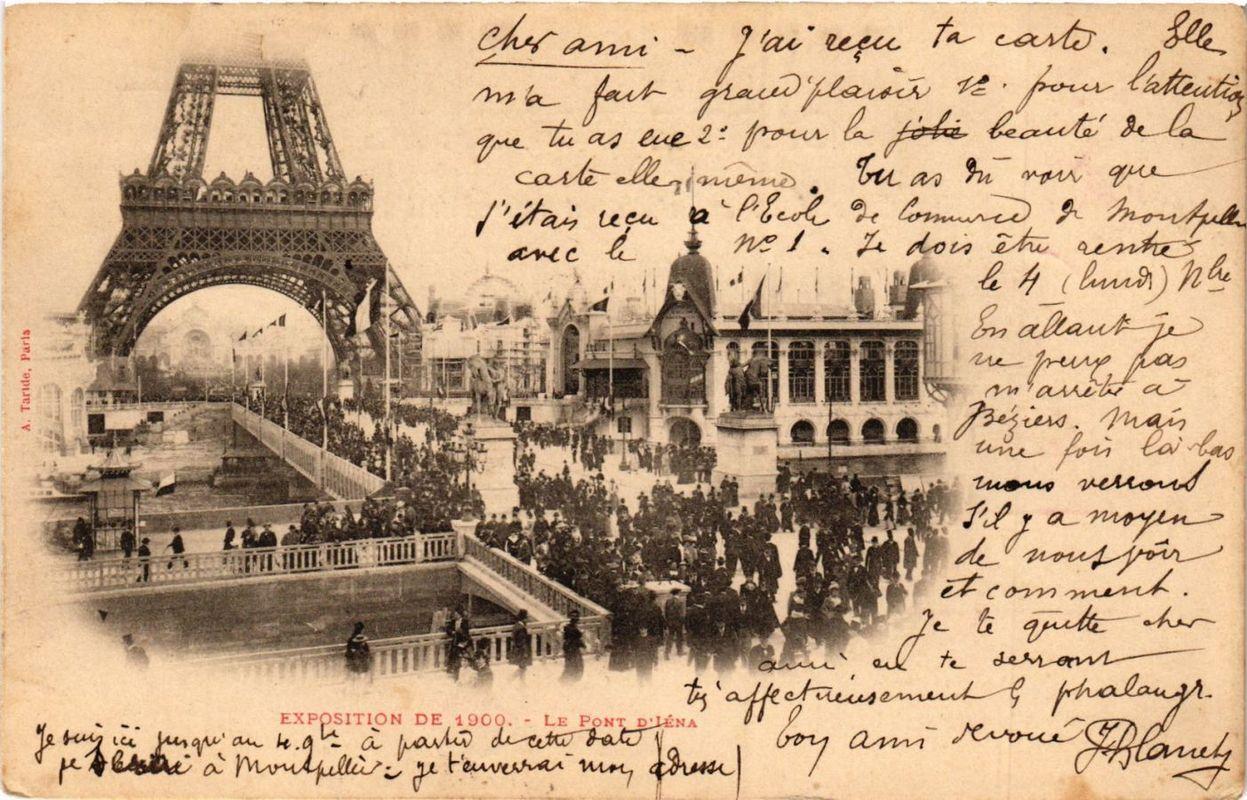 cher ami – J'ai reçu ta carte. Elle
m'a fait grand plaisir 1º. pour l'attention
que tu as eue 2º pour la jolie beauté de la
carte elle même. Tu as dû voir que
j'étais reçu à l'Ecole de Commerce de Montpellier
avec le Nº 1. Je dois être rentré
le 4 (lundi) Nbre
En allant je
ne peux pas
m'arrêter à
Béziers. Mais
une fois là-bas
nous verrons
s'il y a moyen
de nous voir
et comment.
Je te quitte cher
ami en te serrant
affectueusement phalang.
Ton ami dévoué
A. Taride, Paris
EXPOSITION DE 1900. - LE PONT D'IÉNA
Je suis ici jusqu'au 4. à partir de cette date
je à Montpellier – je t'enverrai mon adresse